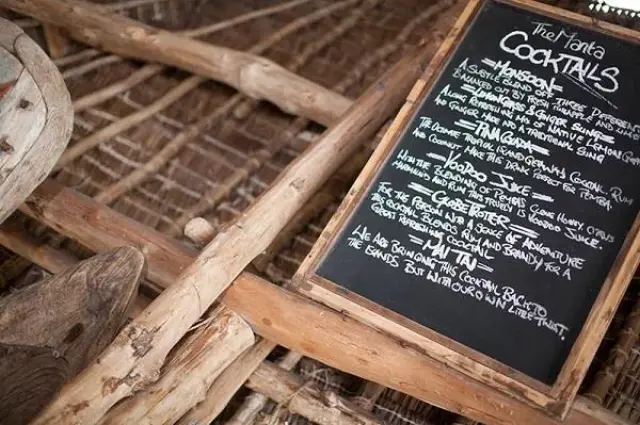 The Manta
COCKTAILS
=MONSOON=
A SUBTLE BLEND OF THREE DIFFERENT
BALANCED OUT BY FRESH PINEAPPLE AND LIME
=LEMONGRASS & GINGER SLING=
A LONG REFRESHING MIX OF NATIVE LEMON GRASS
AND GINGER MADE INTO A TRADITIONAL SLING
=PINA COLADA=
THE ULTIMATE TROPICAL ISLAND GETAWAY COCKTAIL, RUM
AND COCONUT MAKE THIS DRINK PERFECT FOR PEMBA
=VOODOO JUICE=
WITH THE BLENDING OF PEMBAS CLOVE HONEY, CITRUS
MARINADES AND RUM THIS TRULY IS VOODOO JUICE.
=GLOBETROTTER=
FOR THE PERSON WITH A SENSE OF ADVENTURE
THIS COCKTAIL BLENDS RUM AND BRANDY FOR A
GREAT REFRESHING COCKTAIL
=MAI TAI=
WE ARE BRINGING THIS COCKTAIL BACK TO
THE ISLANDS BUT WITH OUR OWN LITTLE TWIST.